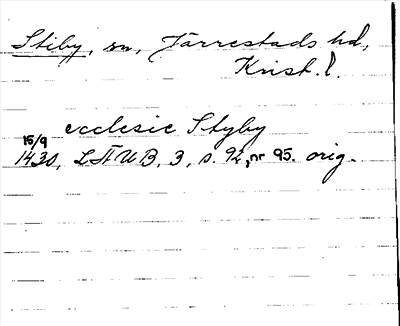 Stiby, sn, Järrestads hd,
Krist. l.
ecclesie Styby
15/9
1430, LÄUB, 3, s. 92, nr 95. orig.